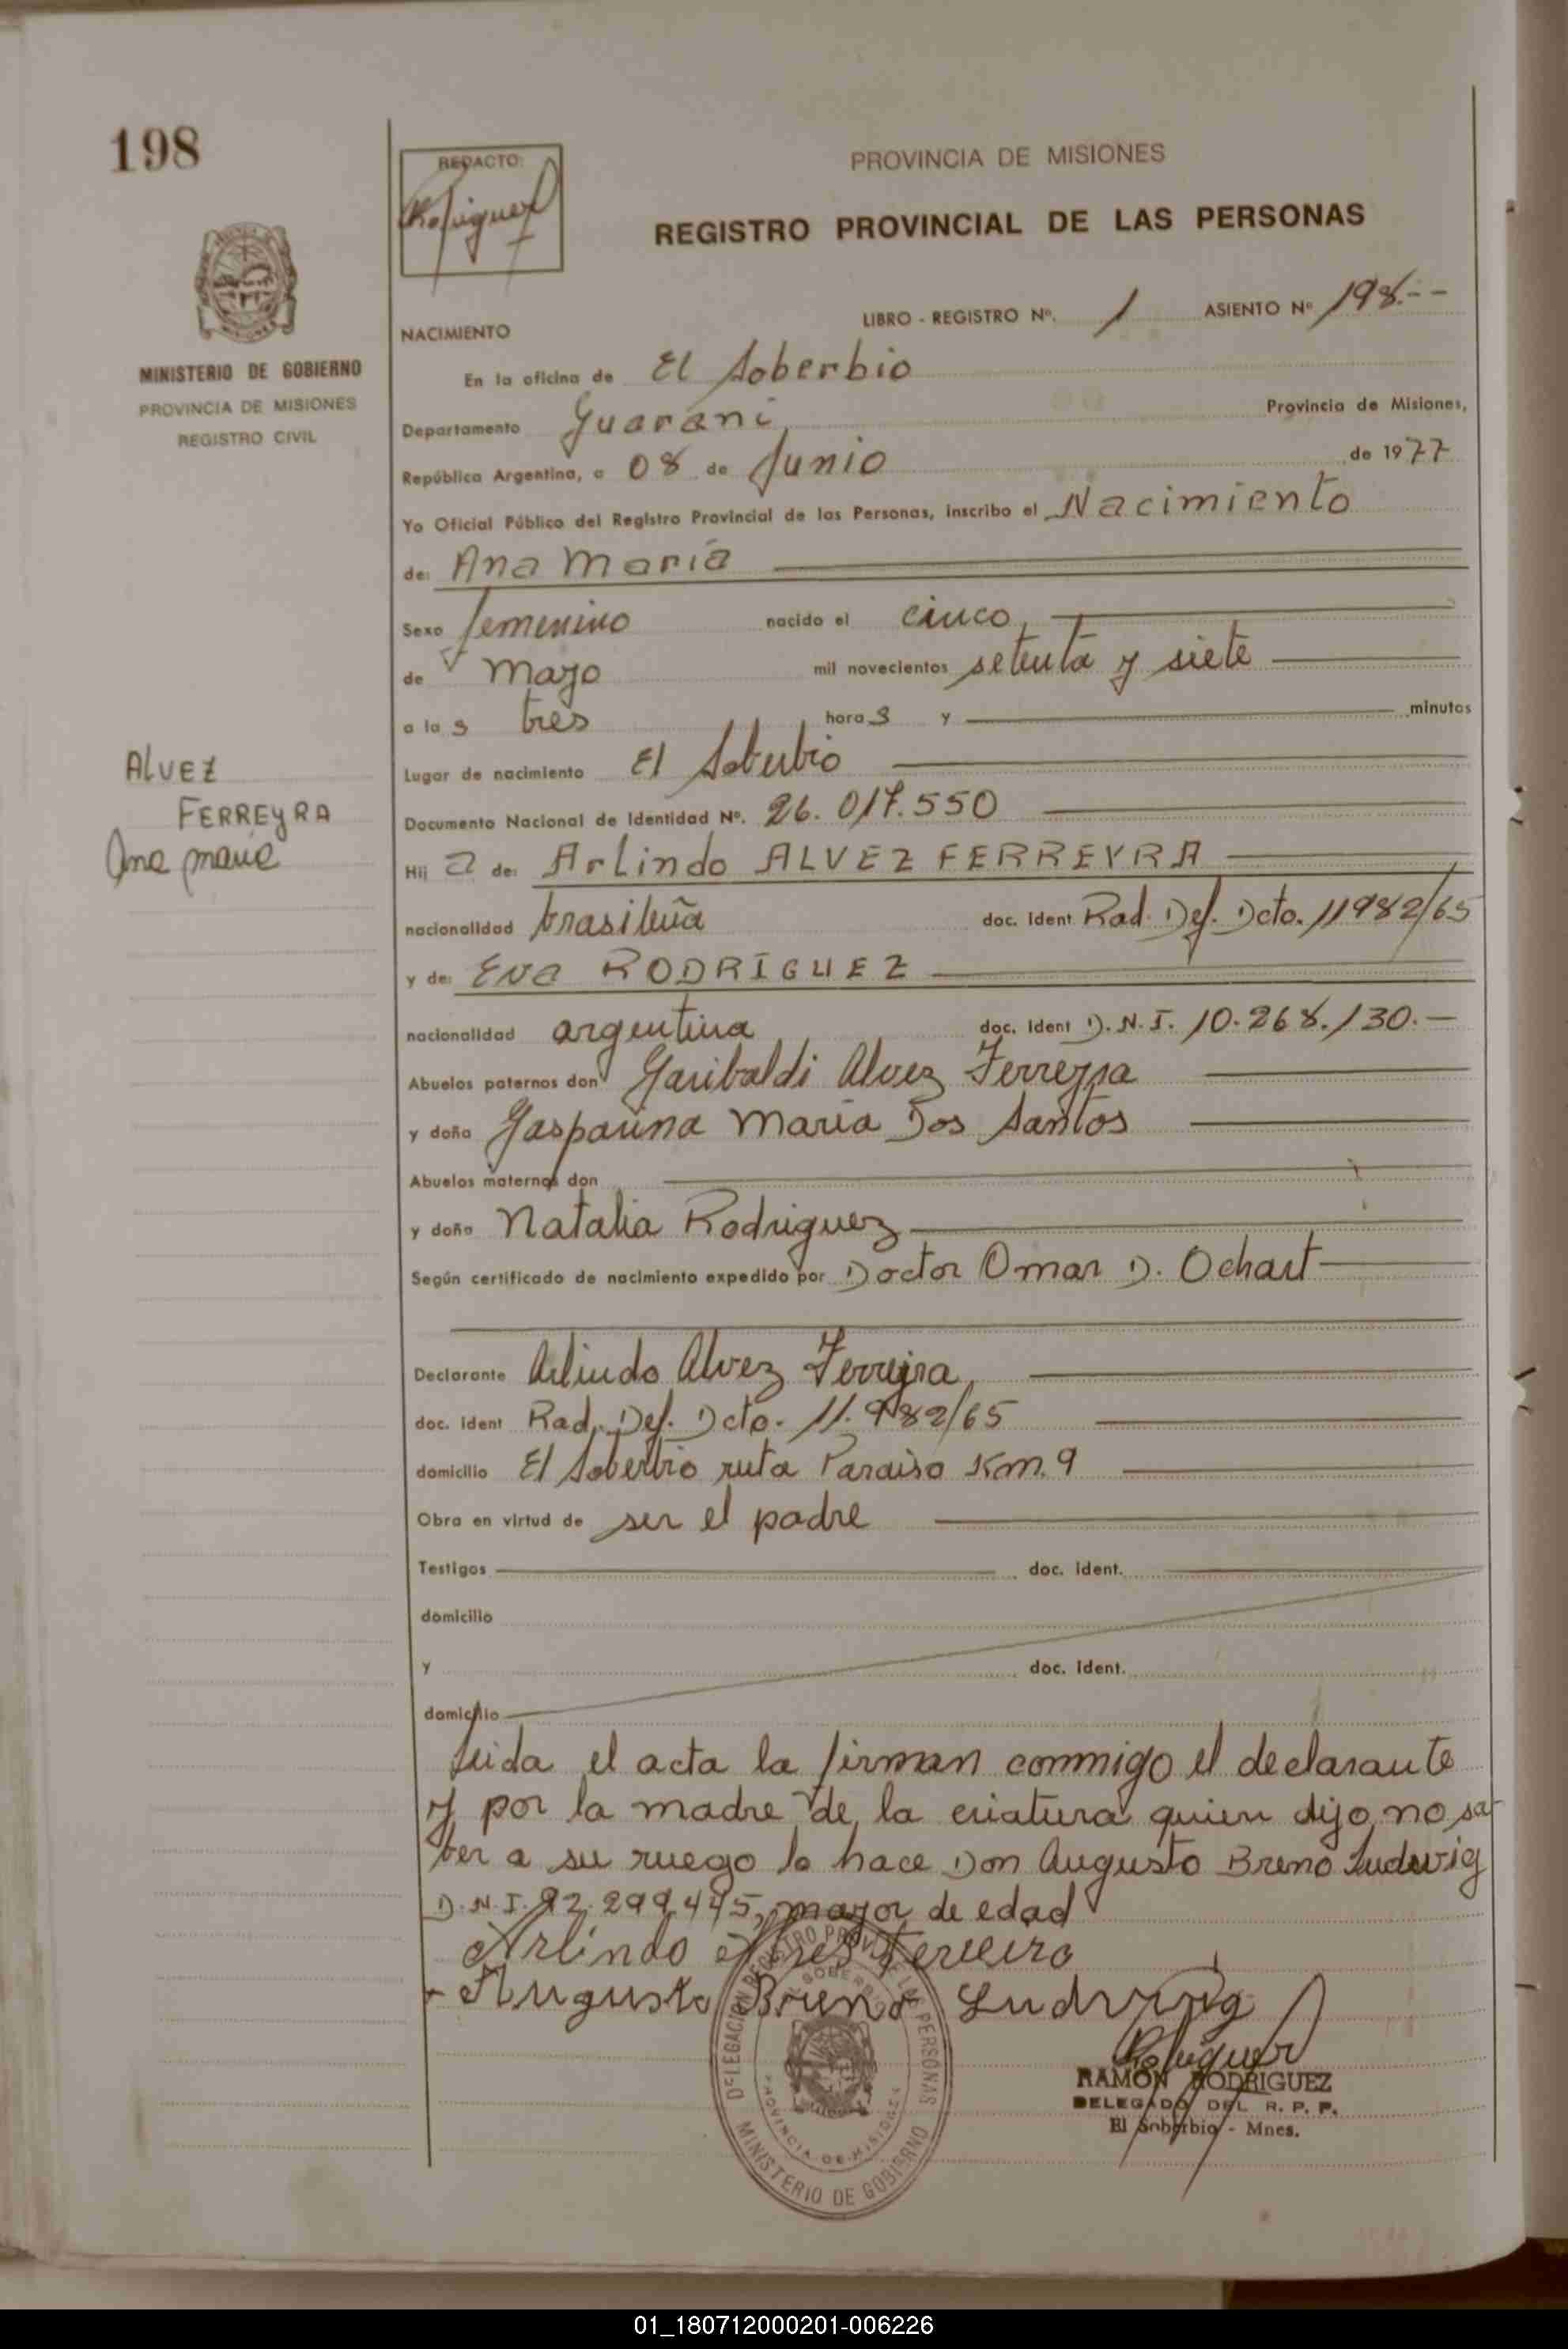 198
REDACTO:
Rodriguez
PROVINCIA DE MISIONES
REGISTRO PROVINCIAL DE LAS PERSONAS
MINISTERIO DE GOBIERNO
PROVINCIA DE MISIONES
REGISTRO CIVIL
NACIMIENTO
LIBRO - REGISTRO Nº. 1 ASIENTO Nº 198.--
En la oficina de El Soberbio
Departamento Guaraní, Provincia de Misiones,
República Argentina, a 08 de Junio de 1977
Yo Oficial Público del Registro Provincial de las Personas, inscribo el Nacimiento
de: Ana María
Sexo femenino nacido el cinco,
de mayo mil novecientos setenta y siete
a las tres horas y minutos
Lugar de nacimiento El Soberbio
Documento Nacional de Identidad Nº. 26.017.550
ALVEZ
FERREYRA
Ana maria
Hija de: Arlindo ALVEZ FERREYRA
nacionalidad brasileña doc. ident Rad. Def. Dcto. 11982/65
y de: Eva RODRÍGUEZ
nacionalidad argentina doc. ident D.N.I. 10.268.130.-
Abuelos paternos don Garibaldi Alvez Ferreyra
y doña Gasparina María Dos Santos
Abuelos maternos don
y doña Natalia Rodriguez
Según certificado de nacimiento expedido por Doctor Omar D. Ochart
Declarante Arlindo Alvez Ferreyra,
doc. ident Rad. Def. Dcto. 11.982/65
domicilio El Soberbio ruta Paraiso Km. 9
Obra en virtud de ser el padre
Testigos doc. ident.
domicilio
y doc. ident.
domicilio
Leida el acta la firman conmigo el declarante
y por la madre de la criatura quien dijo no sa-
ber a su ruego lo hace Don Augusto Breno Ludwig
D.N.I. 92.299.445, mayor de edad
Arlindo Alves Ferreira
Augusto Breno Ludwig
DELEGACION REGISTRO PROV. DE LAS PERSONAS
EL SOBERBIO
PROVINCIA DE MISIONES
MINISTERIO DE GOBIERNO
Rodriguez
RAMON RODRIGUEZ
DELEGADO DEL R. P. P.
El Soberbio - Mnes.
01_180712000201-006226